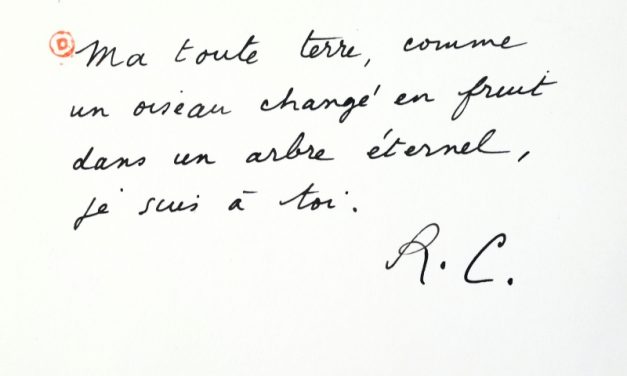 D
Ma toute terre, comme
un oiseau changé en fruit
dans un arbre éternel,
je suis à toi.
R. C.